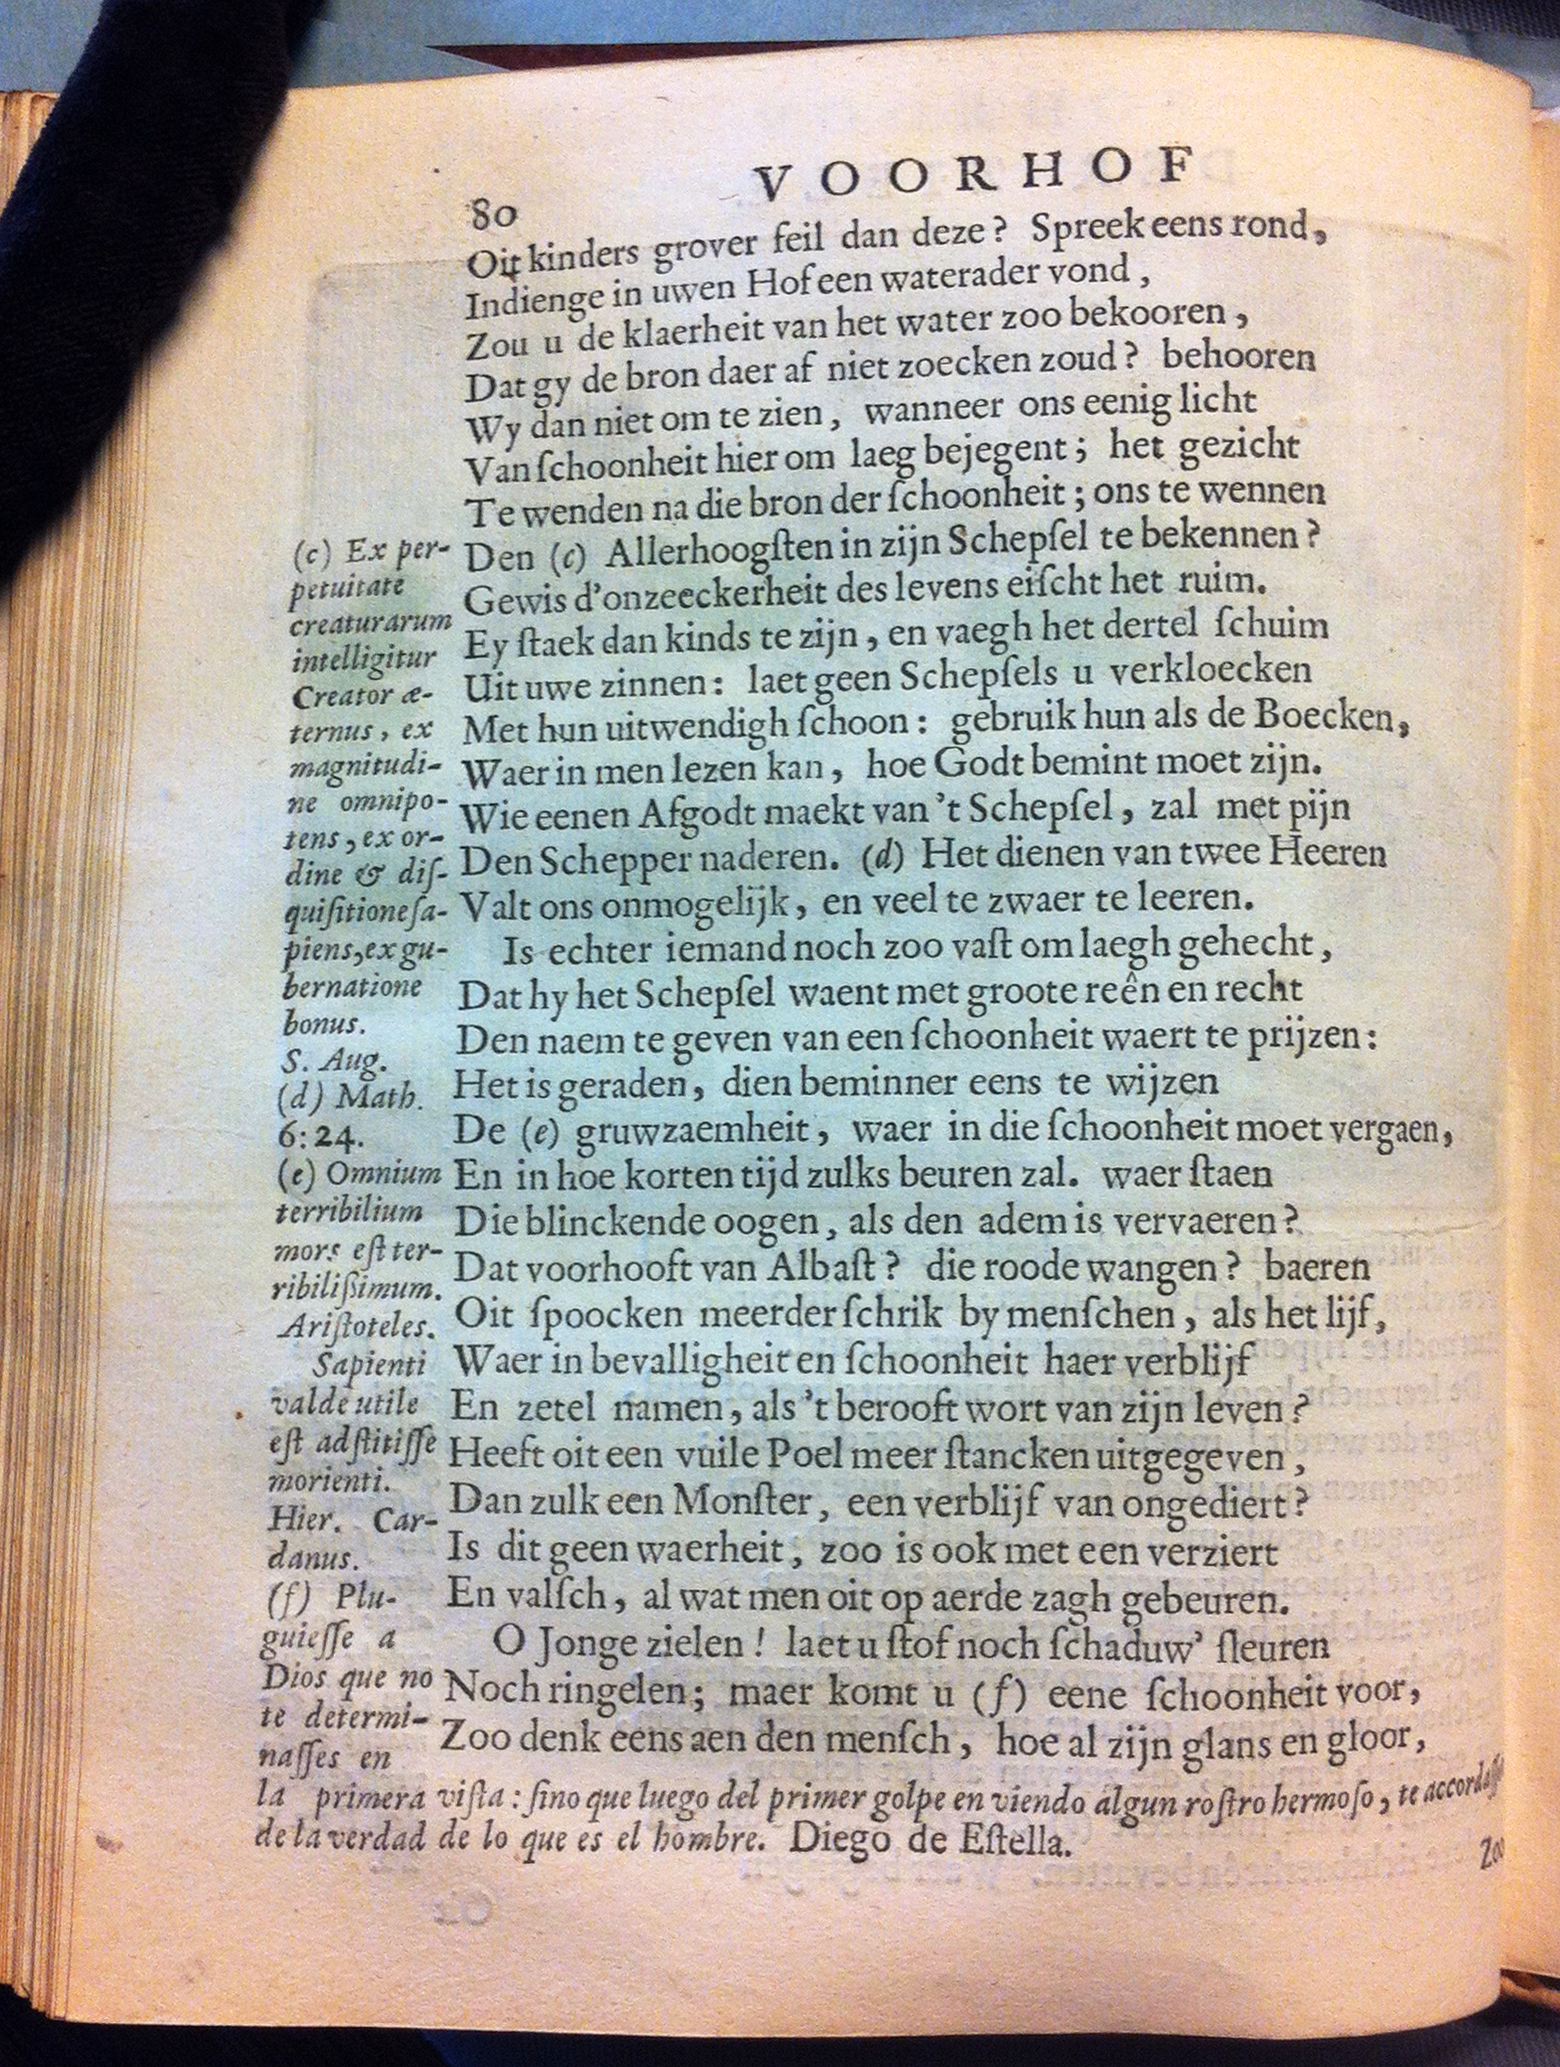 VOORHOF
80
Oit kinders grover feil dan deze? Spreek eens rond,
Indienge in uwen Hof een waterader vond,
Zou u de klaerheit van het water zoo bekooren,
Dat gy de bron daer af niet zoecken zoud? behooren
Wy dan niet om te zien, wanneer ons eenig licht
Van ſchoonheit hier om laeg bejegent; het gezicht
Te wenden na die bron der ſchoonheit; ons te wennen
Den (c) Allerhoogſten in zijn Schepſel te bekennen?
Gewis d'onzeeckerheit des levens eiſcht het ruim.
Ey ſtaek dan kinds te zijn, en vaegh het dertel ſchuim
Uit uwe zinnen: laet geen Schepſels u verkloecken
Met hun uitwendigh ſchoon: gebruik hun als de Boecken,
Waer in men lezen kan, hoe Godt bemint moet zijn.
Wie eenen Afgodt maekt van 't Schepſel, zal met pijn
Den Schepper naderen. (d) Het dienen van twee Heeren
Valt ons onmogelijk, en veel te zwaer te leeren.
Is echter iemand noch zoo vaſt om laegh gehecht,
Dat hy het Schepſel waent met groote reên en recht
Den naem te geven van een ſchoonheit waert te prijzen:
Het is geraden, dien beminner eens te wijzen
De (e) gruwzaemheit, waer in die ſchoonheit moet vergaen,
En in hoe korten tijd zulks beuren zal. waer ſtaen
Die blinckende oogen, als den adem is vervaeren?
Dat voorhooft van Albaſt? die roode wangen? baeren
Oit ſpoocken meerder ſchrik by menſchen, als het lijf,
Waer in bevalligheit en ſchoonheit haer verblijf
En zetel namen, als 't berooft wort van zijn leven?
Heeft oit een vuile Poel meer ſtancken uitgegeven,
Dan zulk een Monſter, een verblijf van ongediert?
Is dit geen waerheit, zoo is ook met een verziert
En valſch, al wat men oit op aerde zagh gebeuren.
O Jonge zielen! laet u ſtof noch ſchaduw' ſleuren
Noch ringelen; maer komt u (f) eene ſchoonheit voor,
Zoo denk eens aen den menſch, hoe al zijn glans en gloor,
(c) Ex per-
petuitate
creaturarum
intelligitur
Creator æ-
ternus, ex
magnitudi-
ne omnipo-
tens, ex or-
dine & diſ-
quiſitione ſa-
piens, ex gu-
bernatione
bonus.
S. Aug.
(d) Math.
6:24.
(e) Omnium
terribilium
mors eſt ter-
ribilißimum.
Ariſtoteles.
Sapienti
valde utile
eſt adſtitiſſe
morienti.
Hier. Car-
danus.
(f) Plu-
guieſſe a
Dios que no
te determi-
naſſes en
la primera viſta: ſino que luego del primer golpe en viendo algun roſtro hermoſo, te
de la verdad de lo que es el hombre. Diego de Eſtella.
Zoo